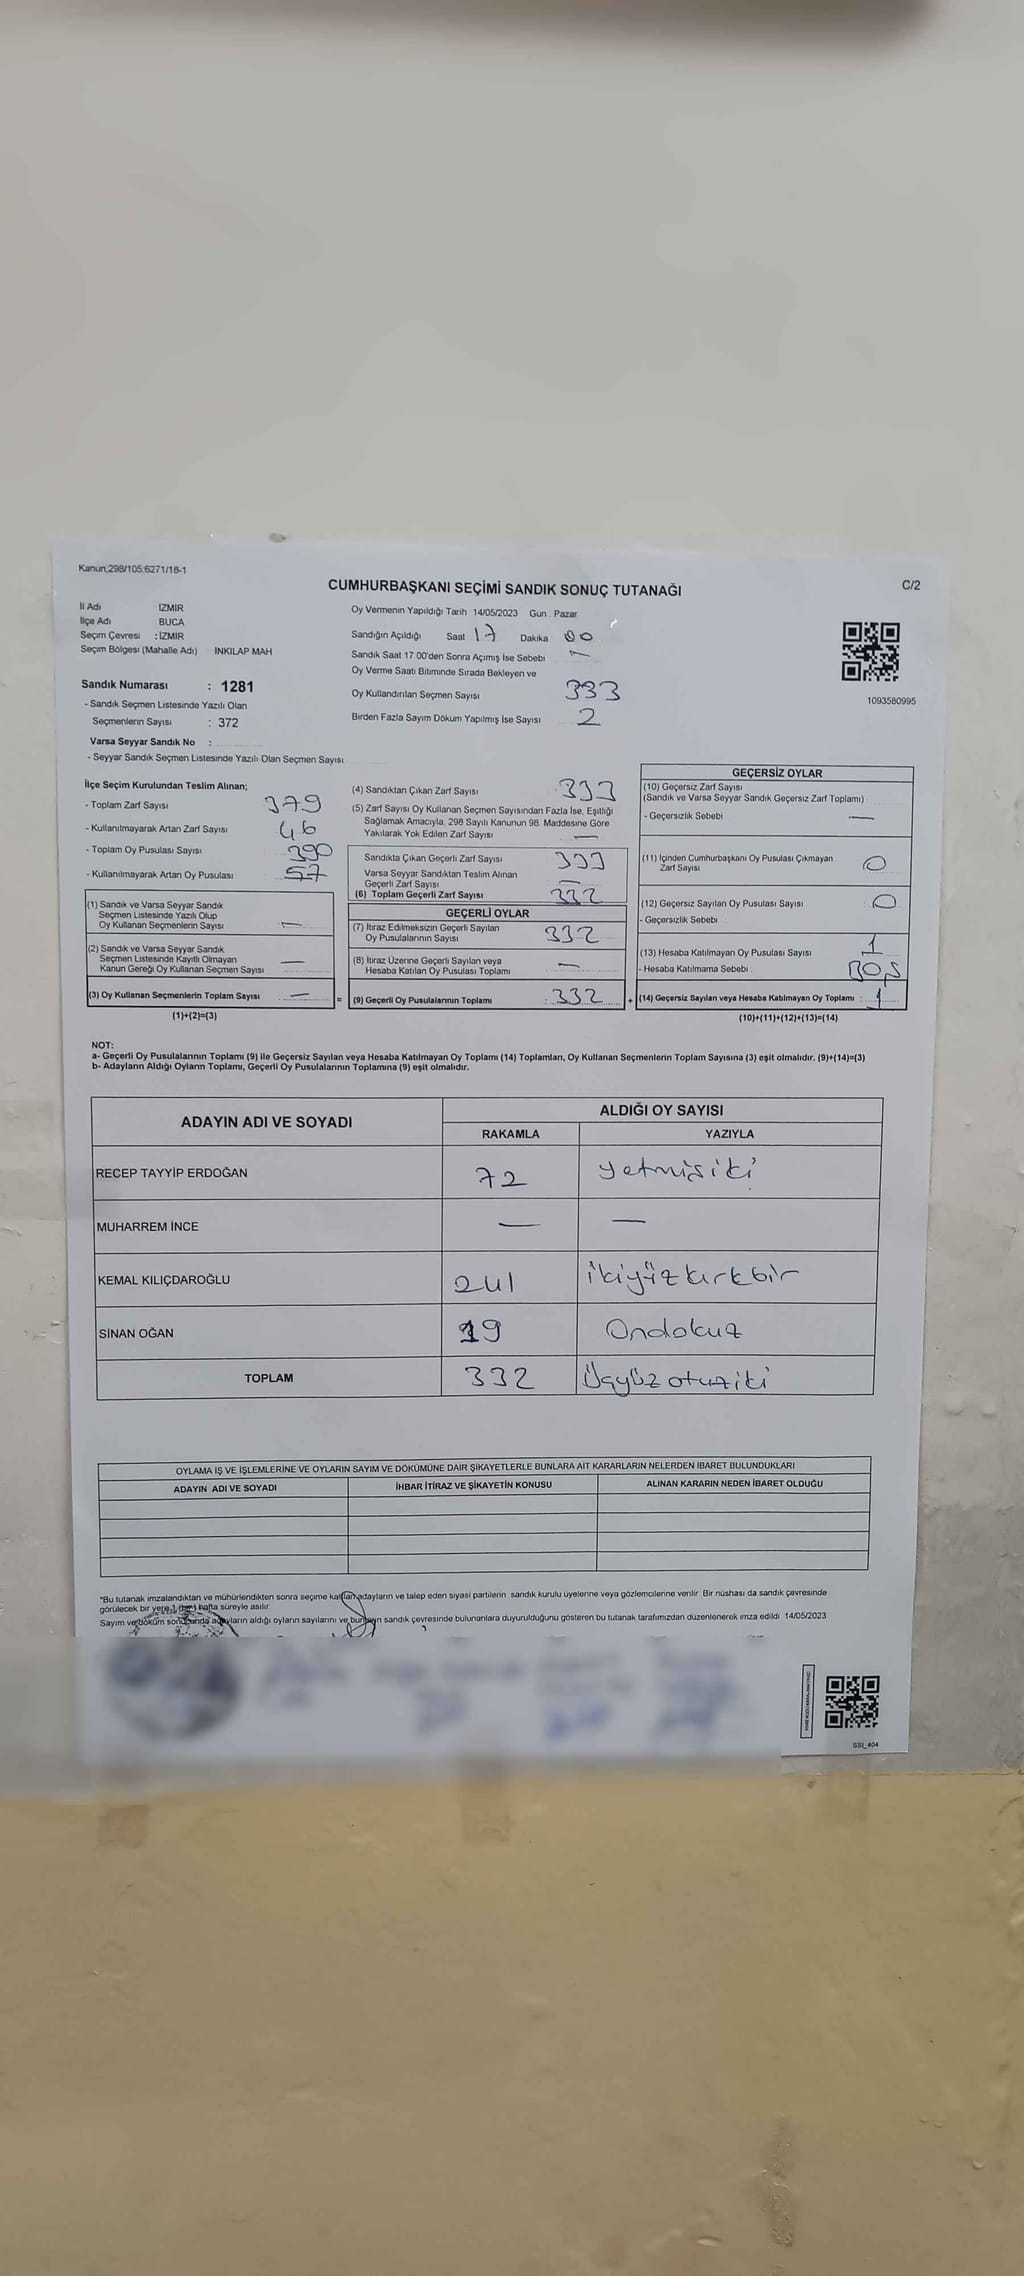 Kanun,298/105;6271/18-1
C/2
CUMHURBAŞKANI SEÇİMİ SANDIK SONUÇ TUTANAĞI
İl Adı İZMİR
İlçe Adı BUCA
Seçim Çevresi : İZMİR
Seçim Bölgesi (Mahalle Adı) İNKILAP MAH
Sandık Numarası : 1281
- Sandık Seçmen Listesinde Yazılı Olan
Seçmenlerin Sayısı : 372
Varsa Seyyar Sandık No :
- Seyyar Sandık Seçmen Listesinde Yazılı Olan Seçmen Sayısı
Oy Vermenin Yapıldığı Tarih 14/05/2023 Gün . Pazar
Sandığın Açıldığı Saat 17 Dakika 00
Sandık Saat 17:00'den Sonra Açımış İse Sebebi —
Oy Verme Saati Bitiminde Sırada Bekleyen ve
Oy Kullandırılan Seçmen Sayısı 333
Birden Fazla Sayım Döküm Yapılmış İse Sayısı 2
1093580995
İlçe Seçim Kurulundan Teslim Alınan;
- Toplam Zarf Sayısı 379
- Kullanılmayarak Artan Zarf Sayısı 46
- Toplam Oy Pusulası Sayısı 390
- Kullanılmayarak Artan Oy Pusulası 57
(1) Sandık ve Varsa Seyyar Sandık
Seçmen Listesinde Yazılı Olup
Oy Kullanan Seçmenlerin Sayısı —
(2) Sandık ve Varsa Seyyar Sandık
Seçmen Listesinde Kayıtlı Olmayan
Kanun Gereği Oy Kullanan Seçmen Sayısı —
(3) Oy Kullanan Seçmenlerin Toplam Sayısı — =
(1)+(2)=(3)
(4) Sandıktan Çıkan Zarf Sayısı 333
(5) Zarf Sayısı Oy Kullanan Seçmen Sayısından Fazla İse, Eşitliği
Sağlamak Amacıyla, 298 Sayılı Kanunun 98. Maddesine Göre
Yakılarak Yok Edilen Zarf Sayısı —
Sandıkta Çıkan Geçerli Zarf Sayısı 333
Varsa Seyyar Sandıktan Teslim Alınan
Geçerli Zarf Sayısı —
(6) Toplam Geçerli Zarf Sayısı 332
GEÇERLİ OYLAR
(7) İtiraz Edilmeksizin Geçerli Sayılan
Oy Pusulalarının Sayısı 332
(8) İtiraz Üzerine Geçerli Sayılan veya
Hesaba Katılan Oy Pusulası Toplamı —
(9) Geçerli Oy Pusulalarının Toplamı : 332 +
GEÇERSİZ OYLAR
(10) Geçersiz Zarf Sayısı
(Sandık ve Varsa Seyyar Sandık Geçersiz Zarf Toplamı)
- Geçersizlik Sebebi —
(11) İçinden Cumhurbaşkanı Oy Pusulası Çıkmayan
Zarf Sayısı 0
(12) Geçersiz Sayılan Oy Pusulası Sayısı 0
- Geçersizlik Sebebi
(13) Hesaba Katılmayan Oy Pusulası Sayısı 1
- Hesaba Katılmama Sebebi : BOŞ
(14) Geçersiz Sayılan veya Hesaba Katılmayan Oy Toplamı : 1
(10)+(11)+(12)+(13)=(14)
NOT:
a- Geçerli Oy Pusulalarının Toplamı (9) ile Geçersiz Sayılan veya Hesaba Katılmayan Oy Toplamı (14) Toplamları, Oy Kullanan Seçmenlerin Toplam Sayısına (3) eşit olmalıdır. (9)+(14)=(3)
b- Adayların Aldığı Oyların Toplamı, Geçerli Oy Pusulalarının Toplamına (9) eşit olmalıdır.
ADAYIN ADI VE SOYADI ALDIĞI OY SAYISI
RAKAMLA YAZIYLA
RECEP TAYYİP ERDOĞAN 72 yetmişiki
MUHARREM İNCE — —
KEMAL KILIÇDAROĞLU 241 ikiyüzkırkbir
SİNAN OĞAN 19 Ondokuz
TOPLAM 332 Üçyüzotuziki
OYLAMA İŞ VE İŞLEMLERİNE VE OYLARIN SAYIM VE DÖKÜMÜNE DAİR ŞİKAYETLERLE BUNLARA AİT KARARLARIN NELERDEN İBARET BULUNDUKLARI
ADAYIN ADI VE SOYADI İHBAR İTİRAZ VE ŞİKAYETİN KONUSU ALINAN KARARIN NEDEN İBARET OLDUĞU
*Bu tutanak imzalandıktan ve mühürlendikten sonra seçime katılan adayların ve talep eden siyasi partilerin sandık kurulu üyelerine veya gözlemcilerine verilir. Bir nüshası da sandık çevresinde
görülecek bir yere 1 (bir) hafta süreyle asılır.
Sayım ve döküm sonucunda adayların aldığı oyların sayılarını ve bunların sandık çevresinde bulunanlara duyurulduğunu gösteren bu tutanak tarafımızdan düzenlenerek imza edildi 14/05/2023
SSI_404